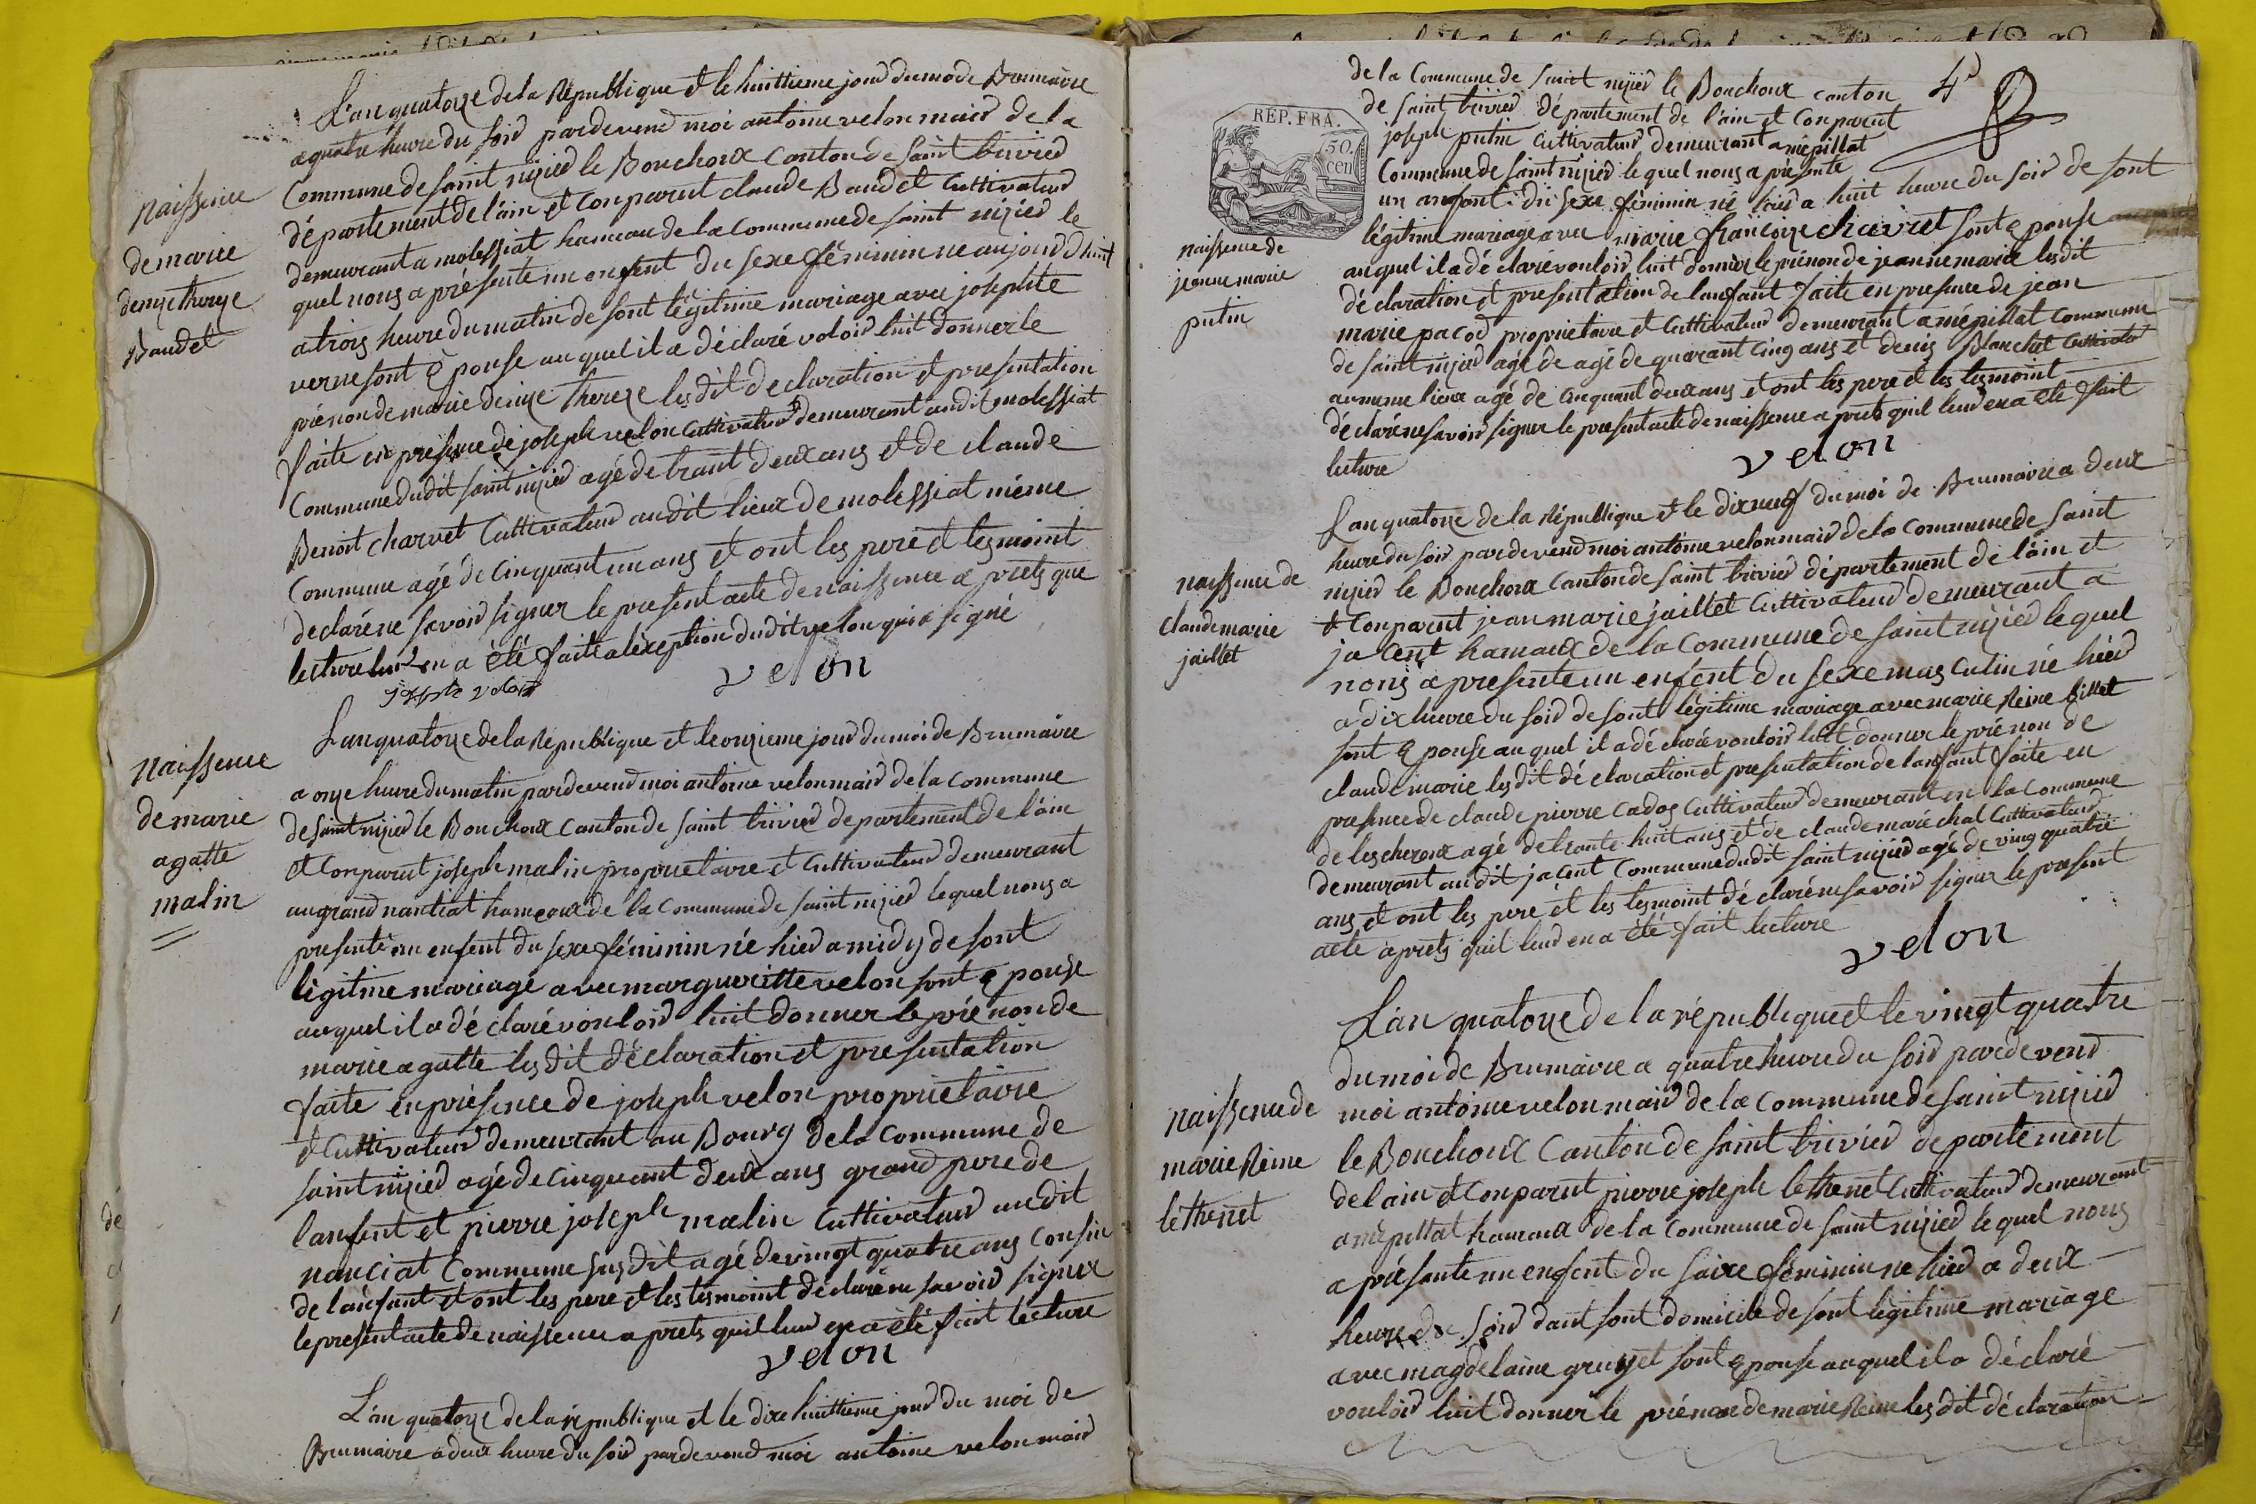 L'an quatorze de la République et le huittieme jour du mo de Brumaire
a quatre heure du soir pardevend moi antoine velon mair de la
Commune de saint nizier le Bouchoux Canton de saint trivier
département de l'ain et Conparut claude Baudet Cultivateur
demeurant a molessiat hameau de la Commune de saint nizier le
quel nous a présente un enfent du sexe féminin ne aujourd'huit
a trois heure du matin de sont légitime mariage avec josephte
verne sont épouse au quel il a déclaré voloir luit donner le
prénon de marie denize therese lesdit declaration et presentation
faite en presence de joseph velon Cultivateur demeurant audit molessiat
Commune dudit saint nizier agé de trant deux ans et de claude
Benoit charvet Cultivateur audit lieux de molessiat même
Commune agé de cinquant un ans et ont les pere et tesmoint
declaré ne savoir signer le present acte de naissence a prets que
lecture leur en a été faite a léxception dudit velon qui a signé
velon
naissence
de marie
denize thereze
Baudet
L'an quatorze de la République et le onzieme jour du moi de Brumaire
a onze heure du matin pardevend moi antoine velon mair de la commune
de saint nizier le Bouchoux Canton de saint trivier departement de l'ain
et Conparut joseph malin proprietaire et Cultivateur demeurant
au grand nantiat hameaux de la Commune de saint nizier le quel nous a
presente un enfent du sexe féminin né hier a midy de sont
légitime mariage avec margueritte velon sont épouse
au quel il a déclaré vouloir luit donner le prénon de
marie agatte lesdit déclaration et presentation
faite en présence de joseph velon proprietaire
et Cultivateur demeurant au Bourg de la Commune de
saint nizier agé de cinquant deux ans grand pere de
lanfent et pierre joseph malin Cultivateur audit
nanciat Commune susdit agé de vingt quatre ans Consin
de lanfant et ont les pere et les tesmoint déclaré ne savoir signer
le present acte de naissence a prets quil leur en a été fait lecture
velon
naissence
de marie
agatte
malin
L'an quatorze de la république et le dixe huittieme jour du moi de
Brumaire a deux heure du soir pardevend moi antoine velon mair
de la Commune de saint nizier le Bouchoux canton
de saint trivier département de l'ain et Conparut
joseph putin Cultivateur demeurant a mépillat
Commune de saint nizier le quel nous a présente
un anfant du sexe féminin né hier a huit heure du soir de sont
légitime mariage avec marie françoize chavret sont épouse
au quel il a déclaré vouloir luit donner le prénon de jeanne marie lesdit
déclaration et presentation de lanfant faite en presence de jean
marie pacod proprietaire et Cultivateur demeurant a mépillat Commune
de saint nizier agé de agé de quarant cinq ans et denis Blanchet Cultivateur
au meme lieux agé de cinquant deux ans et ont les pere et les tesmoint
déclaré ne savoir signer le present acte de naissence a prets quil leur en a été fait
lecture
velon
4
RÉP. FRA.
50
cen
naissence de
jeanne marie
putin
L'an quatorze de la République et le dix neuf du moi de Brumaire a deux
heure du soir pardevend moi antoine velon mair de la Commune de saint
nizier le Bouchoux Canton de saint trivier département de l'ain et
et Conparut jean marie jaillet Cultivateur demeurant a
jacent hamaux de la Commune de saint nizier le quel
nous a presente un enfent du sexe masculin né hier
a dix heure du soir de sont légitime mariage avec marie Reine billet
sont épouse au quel il a déclaré vouloir luit donner le prénon de
claude marie lesdit déclaration et presentation de lanfant faite en
presence de claude pierre Cadoz Cultivateur demeurant en la Commune
de lescheroux agé de trante huit ans et de claude maréchal Cultivateur
demeurant audit jacent Commune dudit saint nizier agé de ving quatre
ans et ont les pere et les tesmoint déclaré ne savoir signer le present
acte a prets quil leur en a été fait lecture
velon
naissence de
claude marie
jaillet
L'an quatorze de la république et le vingt quatre
du moi de Brumaire a quatre heure du soir pardevend
moi antoine velon mair de la Commune de saint nizier
le Bouchoux Canton de saint trivier departement
de lain et Conparut pierre joseph lethenet Cultivateur demeurant
a mépillat hamaux de la Commune de saint nizier le quel nous
a présante un enfent du saixe féminin ne hier a deux
heure du soir dant sont domicile de sont légitime mariage
avec magdelaine gruyet sont épouse au quel il a déclaré
vouloir luit donner le prénon de marie Reine lesdit déclaration
naissence de
marie Reine
lethenet